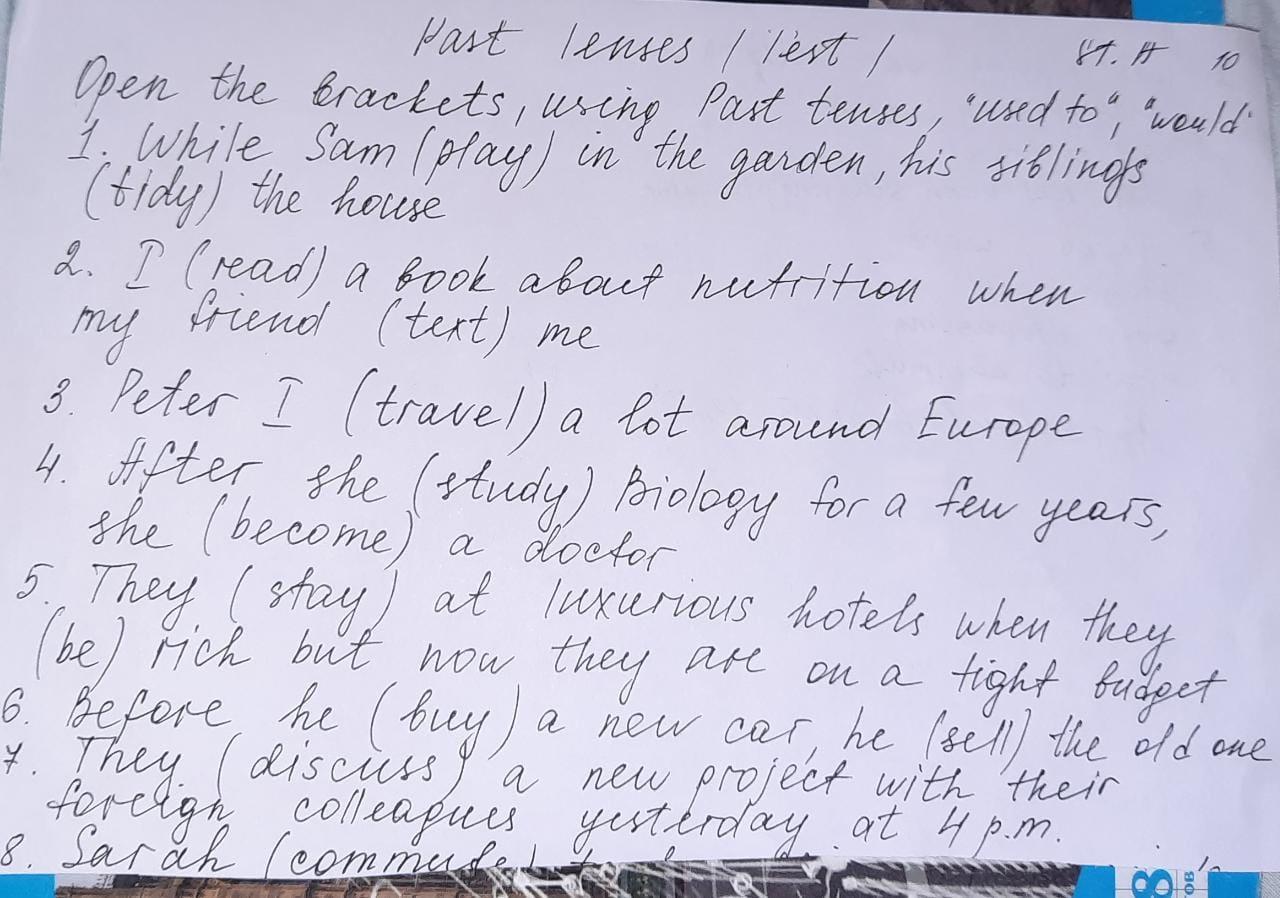 Past Tenses / Test / St. A 10
Open the brackets, using Past tenses, "used to", "would"
1. While Sam (play) in the garden, his siblings
(tidy) the house
2. I (read) a book about nutrition when
my friend (text) me
3. Peter I (travel) a lot around Europe
4. After she (study) Biology for a few years,
she (become) a doctor
5. They (stay) at luxurious hotels when they
(be) rich but now they are on a tight budget
6. Before he (buy) a new car, he (sell) the old one
7. They (discuss) a new project with their
foreign colleagues yesterday at 4 p.m.
8. Sarah (commute)
8
ов